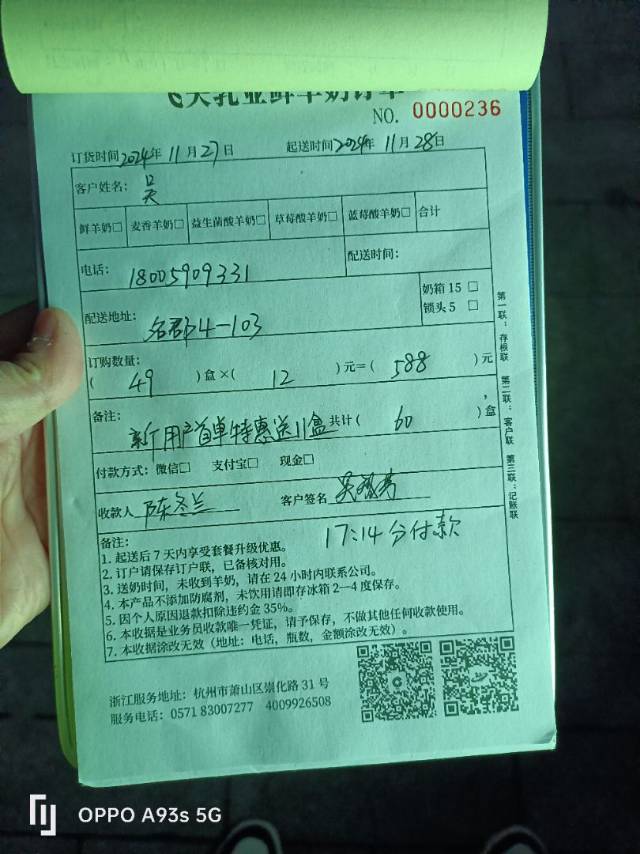 飞天乳业鲜羊奶订单
NO. 0000236
订货时间2024年11月27日 起送时间2024年11月28日
客户姓名：吴
鲜羊奶□ 麦香羊奶□ 益生菌酸羊奶□ 草莓酸羊奶□ 蓝莓酸羊奶□ 合计
电话：18005909331 配送时间：
配送地址：名郡4-103 奶箱 15 □
锁头 5 □
订购数量：
( 49 )盒×( 12 )元=( 588 )元
备注：新用户首单特惠送11盒 共计( 60 )盒
付款方式：微信□ 支付宝□ 现金□
收款人 陈冬兰 客户签名 吴
17:14分付款
备注：
1. 起送后 7 天内享受套餐升级优惠。
2. 订户请保存订户联，已备核对用。
3. 送奶时间，未收到羊奶，请在 24 小时内联系公司。
4. 本产品不添加防腐剂，未饮用请即存冰箱 2—4 度保存。
5. 因个人原因退款扣除违约金 35%。
6. 本收据是业务员收款唯一凭证，请予保存，不做其他任何收款使用。
7. 本收据涂改无效（地址：电话，瓶数，金额涂改无效）。
浙江服务地址：杭州市萧山区崇化路 31 号
服务电话：0571 83007277 4009926508
第一联：存根联 第二联：客户联 第三联：记账联
OPPO A93s 5G